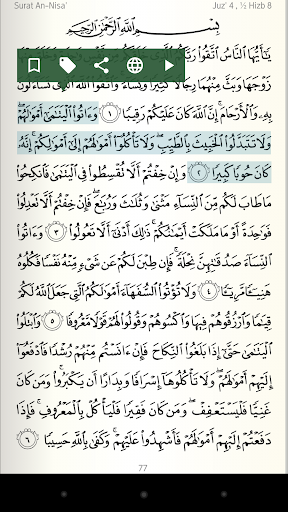 Surat An-Nisa' Juz' 4 , ½ Hizb 8
بِسْمِ اللَّهِ الرَّحْمَٰنِ الرَّحِيمِ
يَٰٓأَيُّهَا النَّاسُ اتَّقُوا۟ رَبَّكُمُ
زَوْجَهَا وَبَثَّ
وَالْأَرْحَامَ ۚ إِنَّ اللَّهَ كَانَ عَلَيْكُمْ رَقِيبًا ١ وَءَاتُوا۟ الْيَتَٰمَىٰٓ أَمْوَٰلَهُمْ ۖ
وَلَا تَتَبَدَّلُوا۟ الْخَبِيثَ بِالطَّيِّبِ ۖ وَلَا تَأْكُلُوٓا۟ أَمْوَٰلَهُمْ إِلَىٰٓ أَمْوَٰلِكُمْ ۚ إِنَّهُۥ
كَانَ حُوبًا كَبِيرًا ٢ وَإِنْ خِفْتُمْ أَلَّا تُقْسِطُوا۟ فِى الْيَتَٰمَىٰ فَانكِحُوا۟
مَا طَابَ لَكُم مِّنَ النِّسَآءِ مَثْنَىٰ وَثُلَٰثَ وَرُبَٰعَ ۖ فَإِنْ خِفْتُمْ أَلَّا تَعْدِلُوا۟
فَوَٰحِدَةً أَوْ مَا مَلَكَتْ أَيْمَٰنُكُمْ ۚ ذَٰلِكَ أَدْنَىٰٓ أَلَّا تَعُولُوا۟ ٣ وَءَاتُوا۟
النِّسَآءَ صَدُقَٰتِهِنَّ نِحْلَةً ۚ فَإِن طِبْنَ لَكُمْ عَن شَىْءٍ مِّنْهُ نَفْسًا فَكُلُوهُ
هَنِيٓـًٔا مَّرِيٓـًٔا ٤ وَلَا تُؤْتُوا۟ السُّفَهَآءَ أَمْوَٰلَكُمُ الَّتِى جَعَلَ اللَّهُ لَكُمْ
قِيَٰمًا وَارْزُقُوهُمْ فِيهَا وَاكْسُوهُمْ وَقُولُوا۟ لَهُمْ قَوْلًا مَّعْرُوفًا ٥ وَابْتَلُوا۟
الْيَتَٰمَىٰ حَتَّىٰٓ إِذَا بَلَغُوا۟ النِّكَاحَ فَإِنْ ءَانَسْتُم مِّنْهُمْ رُشْدًا فَادْفَعُوٓا۟
إِلَيْهِمْ أَمْوَٰلَهُمْ ۖ وَلَا تَأْكُلُوهَآ إِسْرَافًا وَبِدَارًا أَن يَكْبَرُوا۟ ۚ وَمَن كَانَ
غَنِيًّا فَلْيَسْتَعْفِفْ ۖ وَمَن كَانَ فَقِيرًا فَلْيَأْكُلْ بِالْمَعْرُوفِ ۚ فَإِذَا
دَفَعْتُمْ إِلَيْهِمْ أَمْوَٰلَهُمْ فَأَشْهِدُوا۟ عَلَيْهِمْ ۚ وَكَفَىٰ بِاللَّهِ حَسِيبًا ٦
77